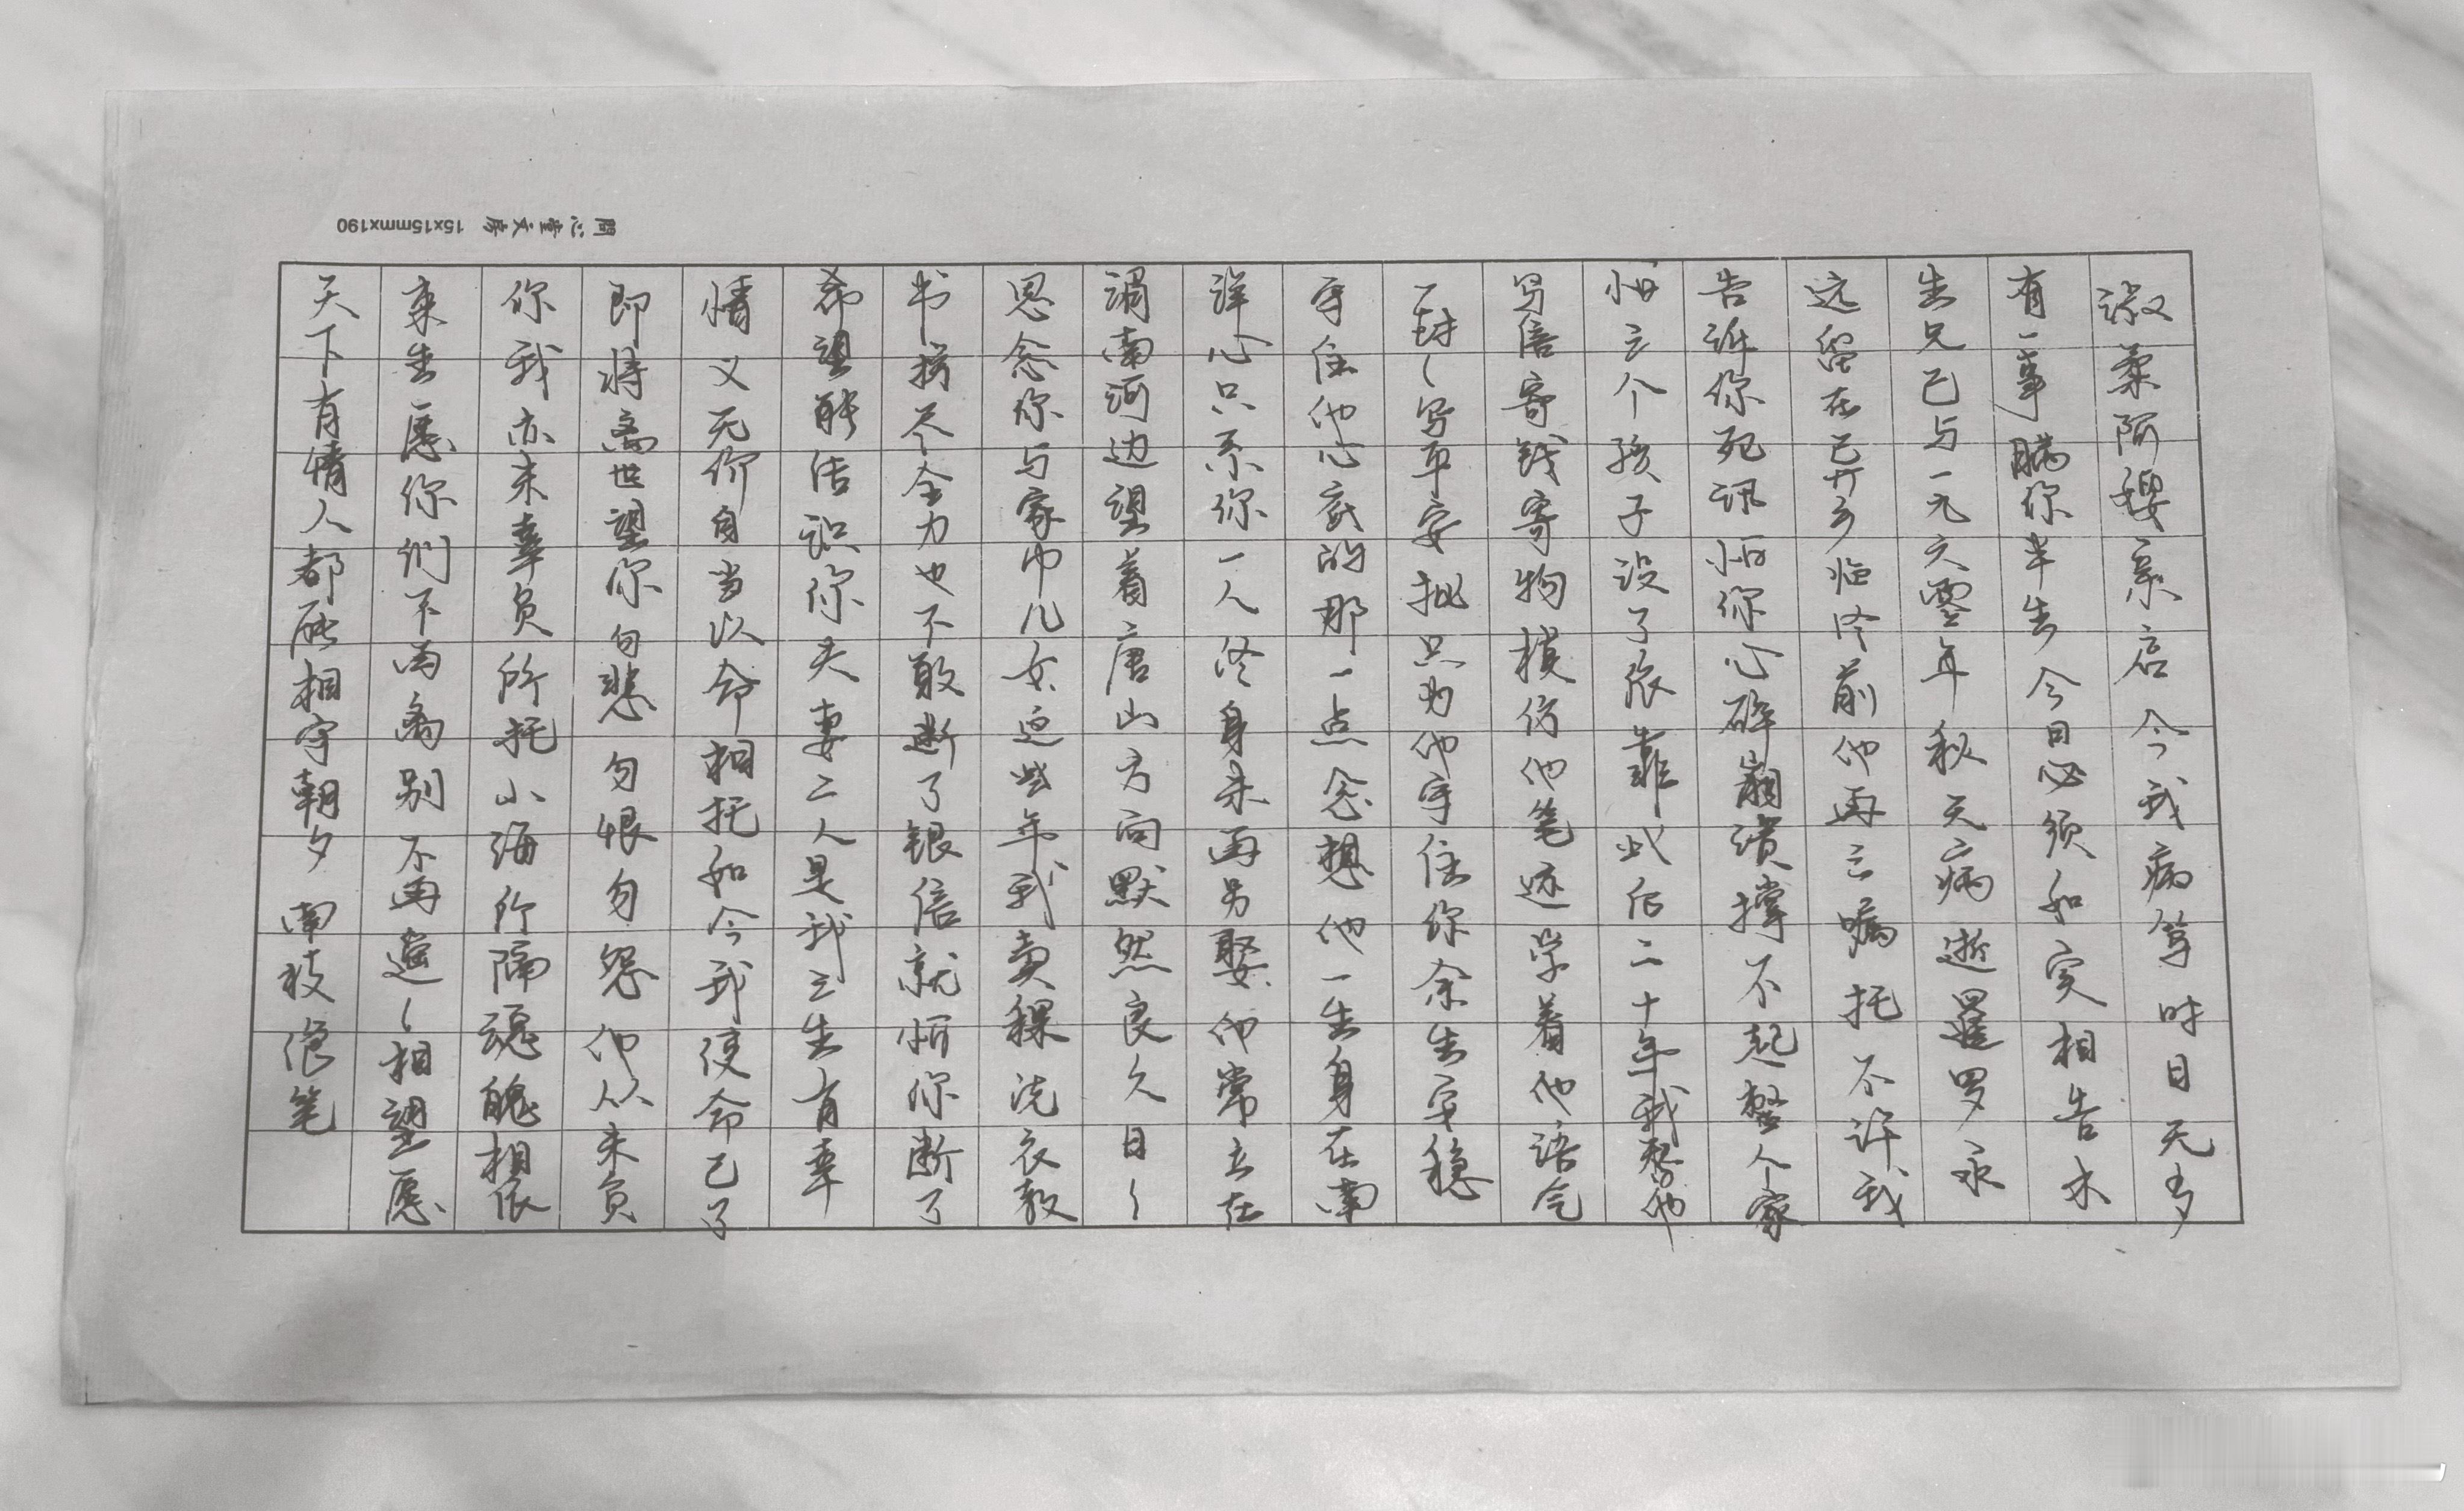 問心堂文房 15x15mmx190
淑柔阿嫂亲启 今我病笃时日无多
有一事瞒你半生 今日必须如实相告 木
生兄已与一九六零年秋天病逝暹罗 永
远留在异乡临终前他再三嘱托 不许我
告诉你死讯怕你心碎崩溃撑不起整个家
怕三个孩子没了依靠此后二十年我替他
写信寄钱寄物模仿他笔迹学着他语气
一封〻写平安批只为他守住你余生安稳
守住他心底的那一点念想他一生身在南
洋心只系你一人终身未再另娶他常立在
湄南河边望着唐山方向默然良久日〻
思念你与家中儿女这些年我卖粿洗衣教
书拼尽全力也不敢断了银信就怕你断了
希望能结识你夫妻二人是我三生有幸
情义无价自当以命相托如今我使命已了
即将离世望你勿悲勿恨勿怨他从未负
你我亦未辜负所托山海所隔魂魄相依
来生愿你们不再离别不再遥〻相望愿
天下有情人都能相守朝夕 南枝绝笔